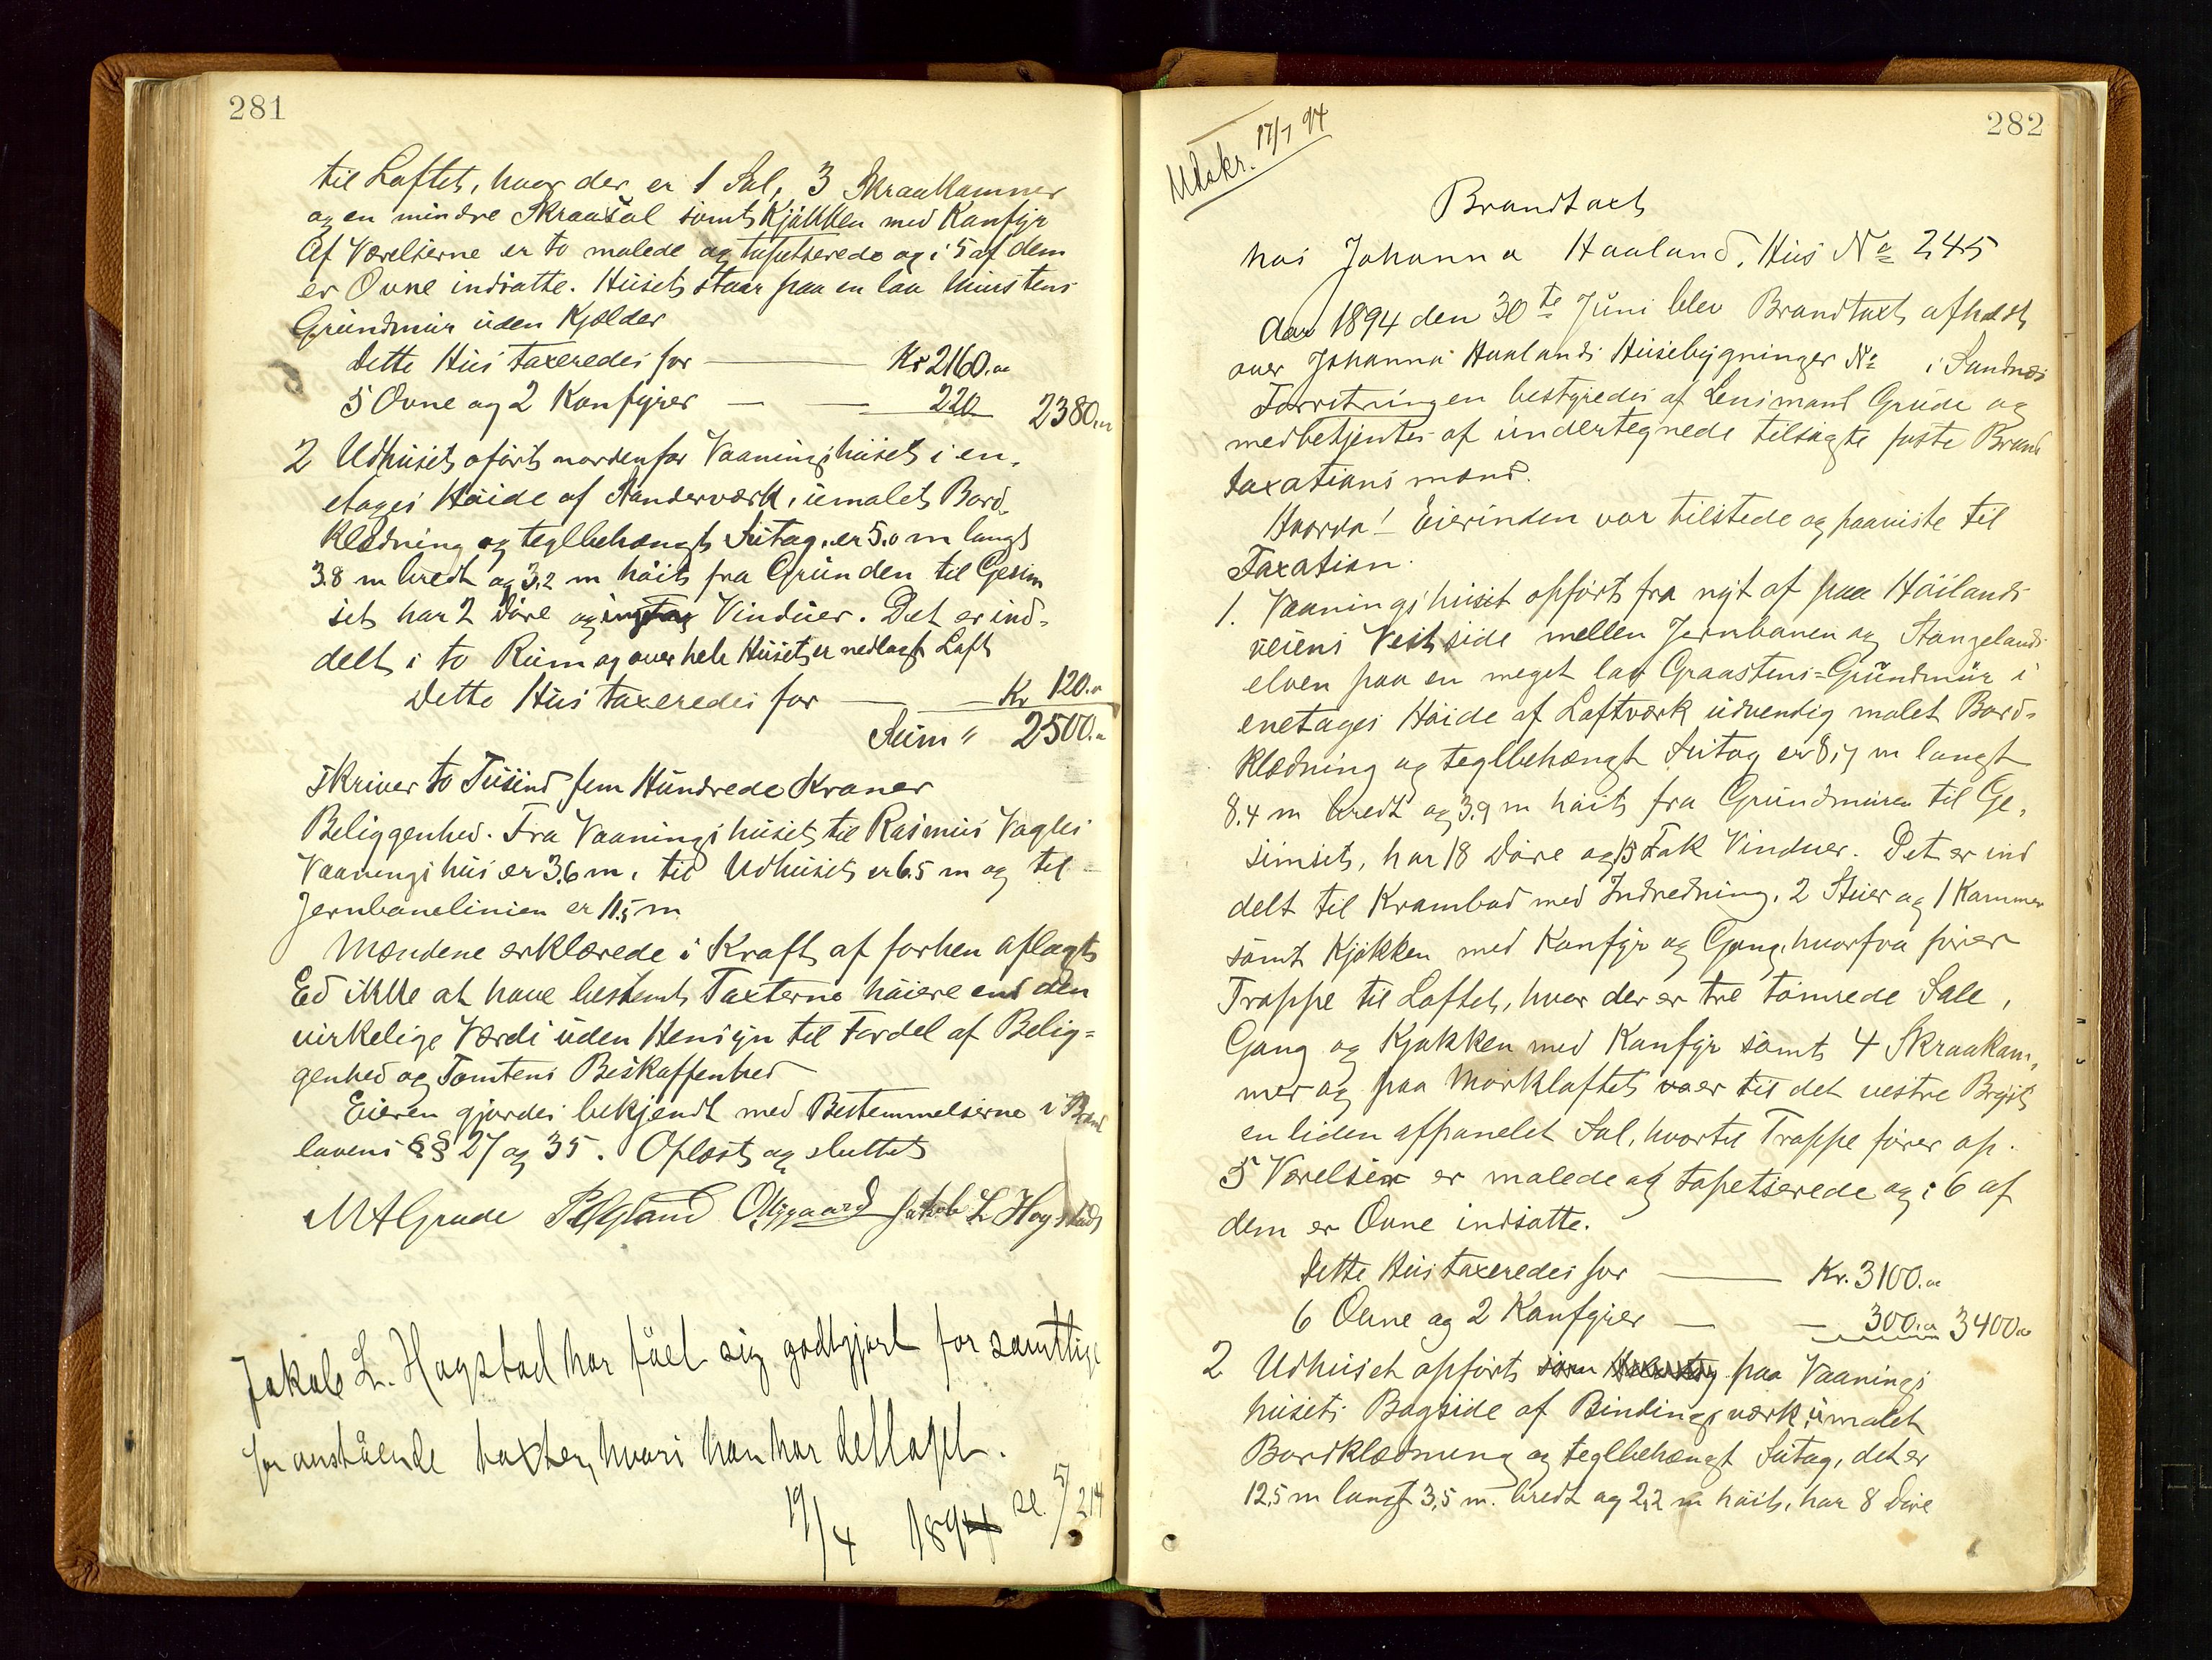 281
til Loftet, hvor der er 1 Sal, 3 Skraakamner
og en mindre Skraasal samt Kjøkken med Komfyr
Af Værelserne er to malede og tapetserede og i 5 af dem
er Ovne indsatte. Huset staar paa en lav
Grundmur uden Kjælder
Dette Hus taxeredes for — Kr 2160.00
5 Ovne og 2 Komfyrer — — 220 2380.00
2 Udhuset opført nordenfor Vaaningshuset i en,
etages Høide af Standerværk, umalet Bord,
klædning og teglbehængt Sutag, er 5.0 m langt
3.8 m bredt og 3,2 m høit fra Grunden til Gesim
set har 2 Døre og Vinduer. Det er ind=
delt i to Rum og over hele Huset er nedlagt Loft
Dette Hus taxeredes for — Kr 120.00
Sum " 2500.00
skriver to Tusind fem Hundrede Kroner
Beliggenhed. Fra Vaaningshuset til Rasmus Vagles
Vaaningshus er 3,6 m, til Udhuset er 6.5 m og til
Jernbanelinien er 11,5 m
Mændene erklærede i Kraft af forhen aflagt
Ed ikke at have bestemt Taxterne høiere end den
virkelige Værdi uden Hensyn til Fordel af Belig=
genhed og Tomtens Beskaffenhed
Eieren gjordes bekjendt med Bestemmelserne i Brand
lovens §§ 27 og 35. Oplæst og sluttet
M A Grude Jakob L Hogstad
Jakob L. Hogstad har fået sig godtgjort for samtlige
foranstående taxter, hvori han har deltaget.
19/4 1894 se 5/214
282
Udskr. 17/7 94
Brandtaxt
hos Johanna Haaland, Hus No 245
Aar 1894 den 30te Juni blev Brandtaxt afholdt
over Johanna Haalands Husebygninger No i Sandnæs
Forretningen bestyredes af Lensmand Grude og
medbetjentes af undertegnede tilsagte faste Brand
taxationsmænd.
Hvorda! — Eierinden var tilstede og paaviste til
Taxation.
1. Vaaningshuset opført fra nyt af paa Høilands
veiens Vestside mellem Jernbanen og Stangelands
elven paa en meget lav Graastens=Grundmur i
enetages Høide af Loftværk udvendig malet Bord=
klædning og teglbehængt Sutag er m langt
8.4 m bredt og 3.9 m høit fra Grundmuren til Ge,
simset, har 18 Døre og 15 Fak Vinduer. Det er ind
delt til Krambod med Indredning, 2 Stuer og 1 Kammer
samt Kjøkken med Komfyr og Gang, hvorfra fører
Trappe til Loftet, hvor der er tre tømrede Sale,
Gang og Kjøkken med Komfyr samt 4 Skraakam,
mer og paa Mørkloftet er til det vestre Bryst
en liden afpanelet Sal, hvortil Trappe fører op.
5 Værelser er malede og tapetserede og i 6 af
dem er Ovne indsatte.
Dette Hus taxeredes for — Kr. 3100.00
6 Ovne og 2 Komfyrer — — 300.00 3400.00
2 Udhuset opført som paa Vaanings
husets Bagside af Bindingsværk, umalet
Bordklædning og teglbehængt Sutag, det er
12,5 m langt 3,5 m. bredt og 2,2 m høit, har 8 Døre